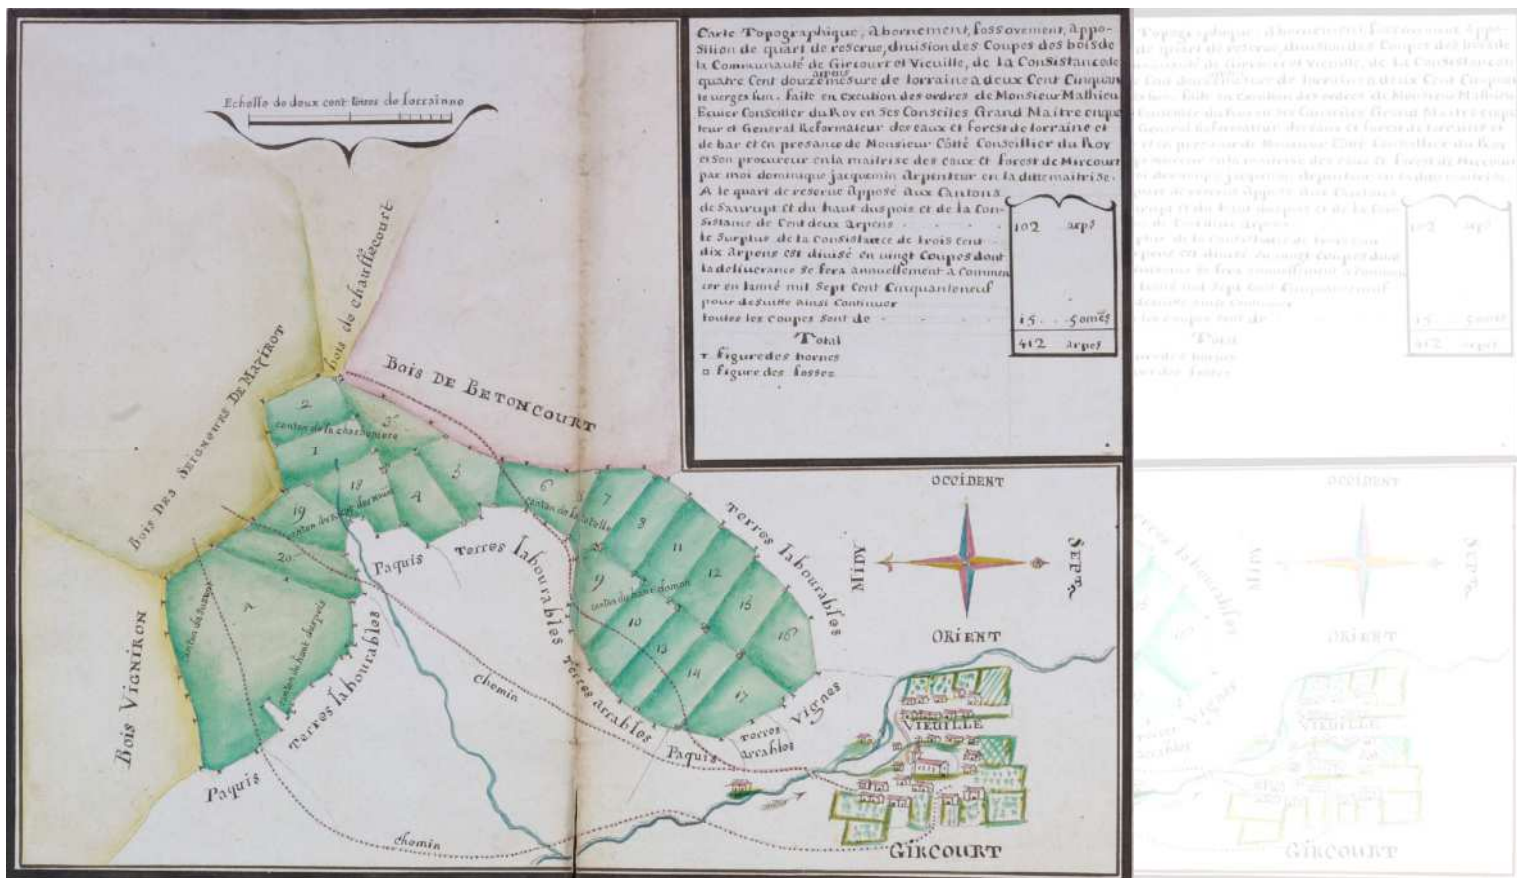 Carte Topographique, abornement, fossoyement, appo-
sition de quart de reserve, division des Coupes des bois de
la Communauté de Gircourt et Vieuille, de la Consistance de
quatre Cent douze arpens mesure de lorraine a deux Cent Cinquan
te verges l'un. faite en execution des ordres de Monsieur Mathieu
Ecuier Conseiller du Roy en Ses Conseiles Grand Maitre enque
teur et General Reformateur des eaux et forest de lorraine et
de bar et en presance de Monsieur Côtté Conseillier du Roy
et Son procureur en la maitrise des eaux et forest de Mircourt
par moi dominique jacquemin arpenteur en la ditte maitrise.
A le quart de reserve apposé aux Cantons
de Saurupt et du haut duspois et de la Con-
sistance de Cent deux arpens 102 arps
le Surplus de la Consistance de trois Cent
dix arpens est divisé en vingt Coupes dont
la deliurance se fera annuellement à Commen
cer en lanné mil Sept Cent Cinquanteneuf
pour desuitte ainsi Continuer
toutes les coupes sont de 15 5 omées
Total 412 arpes
figure des bornes
figure des fossez
Echelle de deux cent toises de lorrainne
bois de chauffecourt
BOIS DES SEIGNEURS DE MAZIROT
BOIS DE BETONCOURT
BOIS VIGNIRON
2
3
canton de la charboniere
1
18
4
5
6
7
canton de la
8
19
20
9
11
12
canton du haut
10
15
16
13
14
17
A
canton de Saurupt
canton du haut duspois
Paquis
Terres labourables
Terres labourables
Terres labourables
Terres arrables
Terres arrables
Vignes
Paquis
Paquis
chemin
chemin
OCCIDENT
MIDY
SEPT
ORIENT
VIEUILLE
GIRCOURT